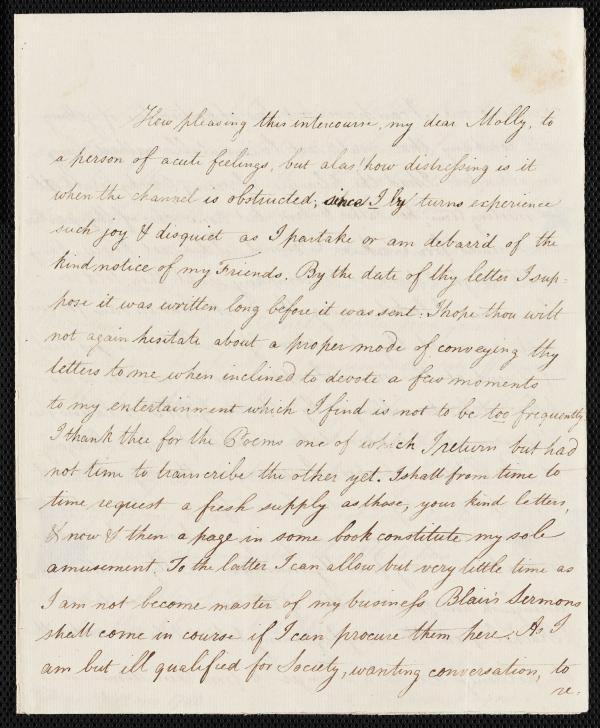 How pleasing this intercourse, my dear Molly, to
a person of acute feelings, but alas! how distressing is it
when the channel is obstructed, since I by turns experience
such joy & disquiet as I partake or am debarr'd of the
kind notice of my Friends. By the date of thy letter I sup-
pose it was written long before it was sent: I hope thou wilt
not again hesitate about a proper mode of conveying thy
letters to me when inclined to devote a few moments
to my entertainment which I find is not to be too frequently
I thank thee for the Poems one of which I return but had
not time to transcribe the other yet. I shall from time to
time request a fresh supply as those, your kind letters,
& now & then a page in some book constitute my sole
amusement. To the latter I can allow but very little time as
I am not become master of my business Blair's Sermons
shall come in course if I can procure them here. As I
am but ill qualified for Society, wanting conversation, to
re-